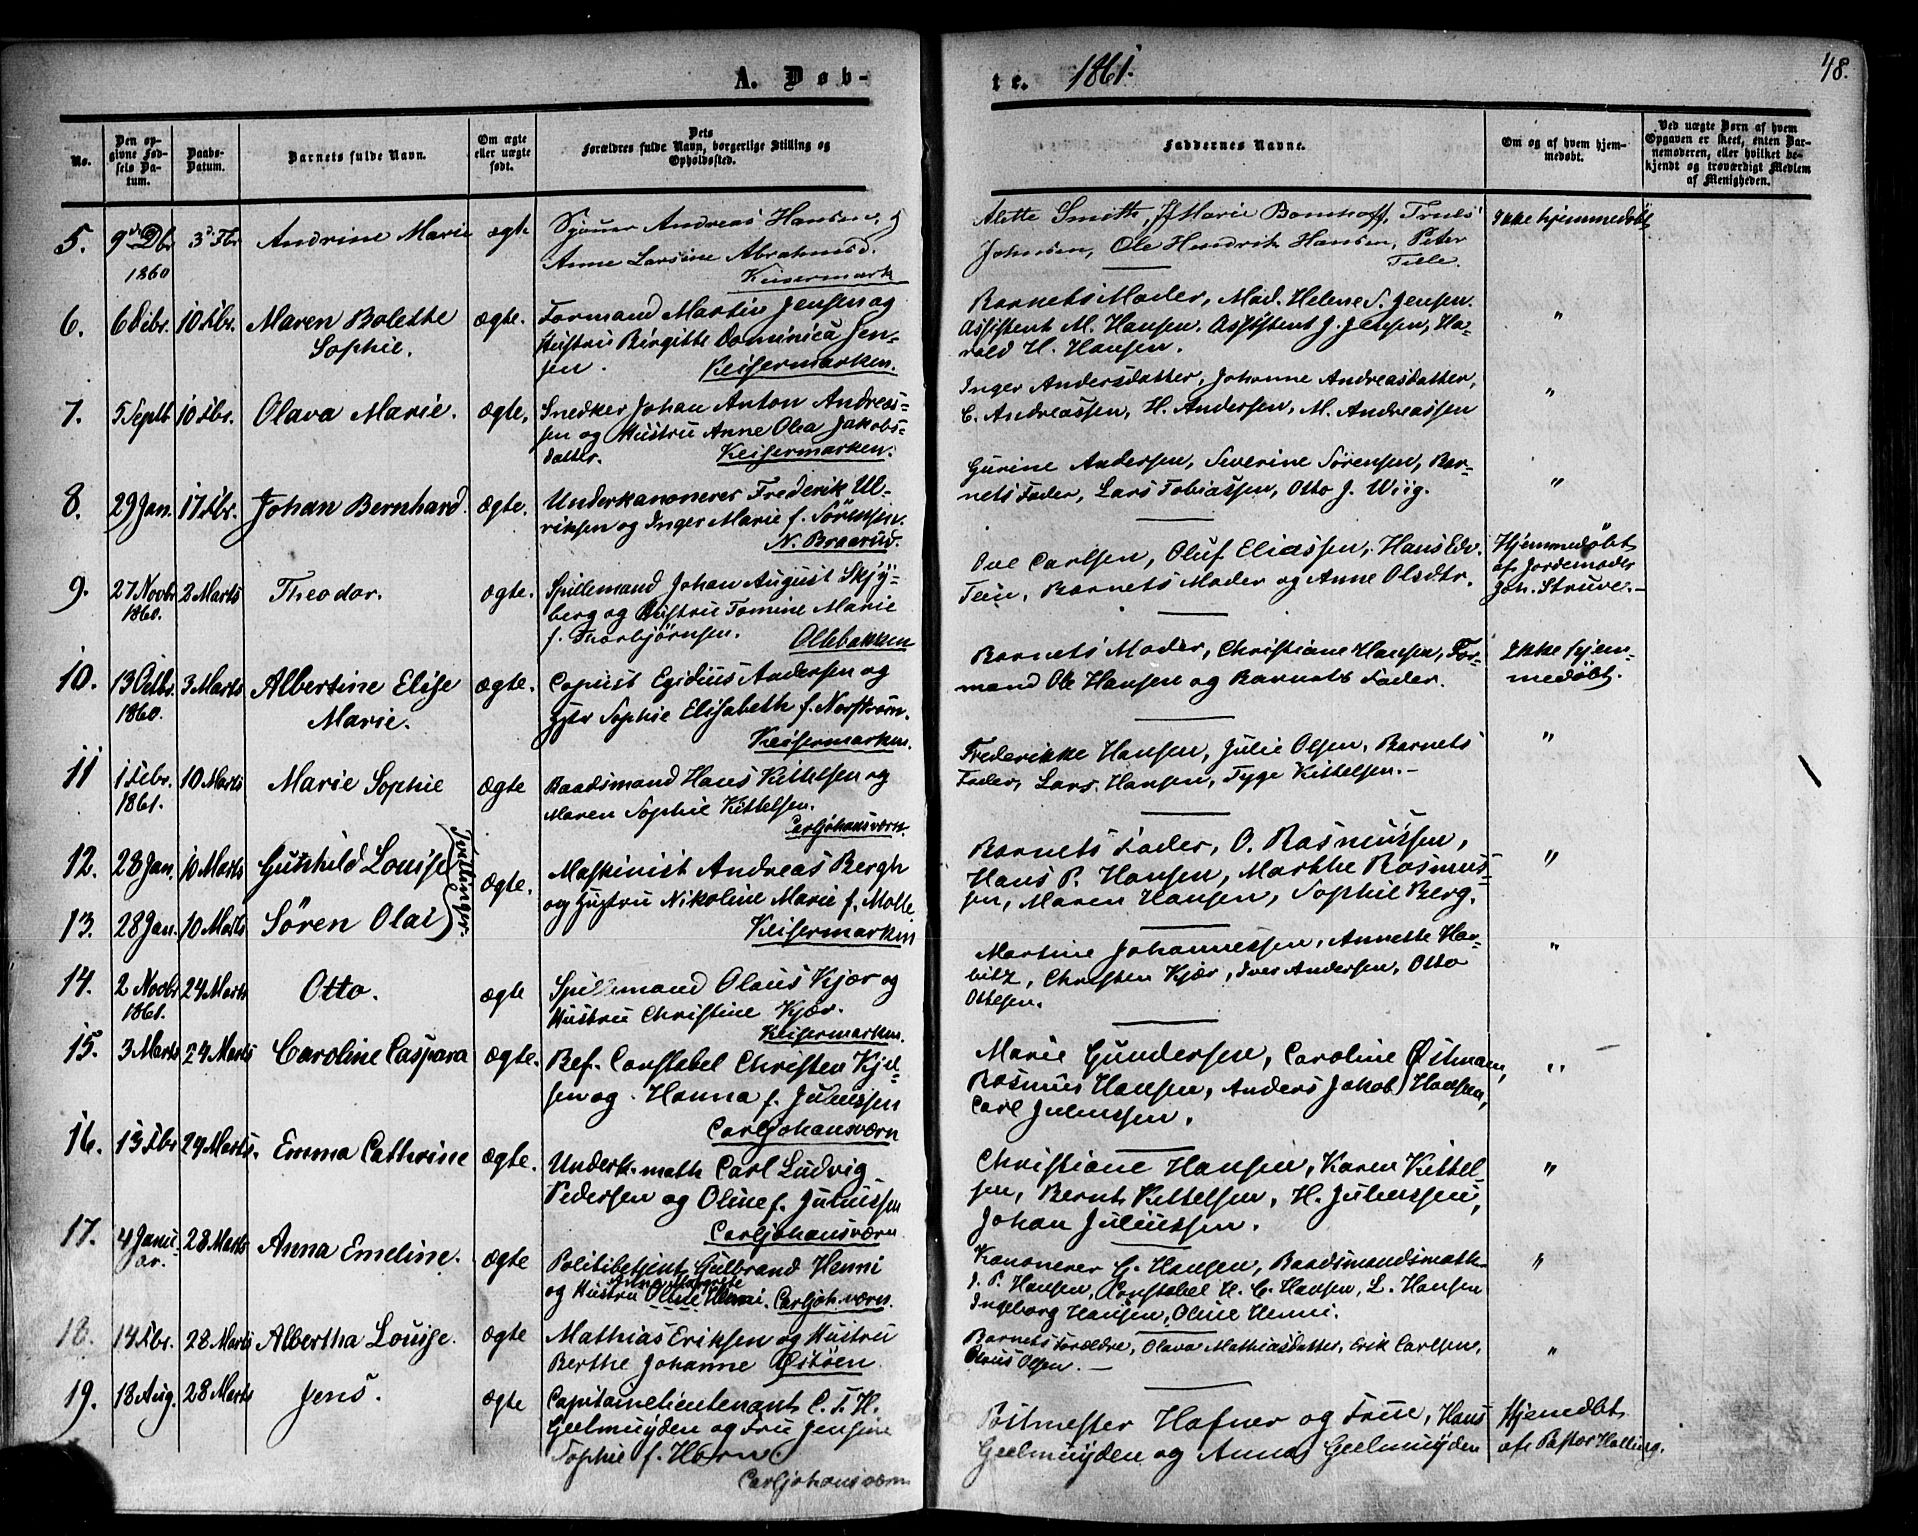 A. Døb-
te. 1861.
48.
No.
Den op-
givne Fød-
sels Da-
tum.
Daabs-
Datum.
Barnets fulde Navn.
Om ægte
eller uægte
født.
Dets
Forældres fulde Navn, borgerlige Stilling og
Opholdssted.
Faddernes Navne.
Om og af hvem hjem-
medøbt.
Ved uægte Børn af hvem
Opgaven er skeet, enten Bar-
nemoderen, eller hvilket be-
kjendt og troværdigt Medlem
af Menigheden.
5. 9de Dbr 3d Fbr Andrine Marie ægte
1860
Andreas Hansen og
Anne Larsine Abrahmsd.
Keisermark
Alette Smith, Marie Bomhoff, Trues
Johnsen, Ole Hendrik Hansen, Peter
Telle.
Ikke hjemmedøbt
6. 6 Debr. 10 Fbr. Maren Bolette
Sophie. ægte.
Formand Martin Jensen og
Hustru Birgitte Dominica Jen-
sen. Keisermarken.
Barnets Moder, Mad. Helene S. Jensen.
Assistent M. Hansen, Assistent J. Jensen, Ha-
rald H. Hansen.
"
7. 5 Septb. 10 Fbr. Olava Marie. ægte,
Snedker Johan Anton Andreas-
sen og Hustru Anne Olea Jakobs-
datter. Keisermarken.
Inger Andersdatter, Johanne Andreasdatter,
C. Andreassen, H. Andersen, M. Andreassen
"
8. 29 Jan. 17 Fbr. Johan Bernhard. ægte.
Underkanoneer Frederik Ul-
riksen og Inger Marie f. Sørensen.
N. Braarud.
Gurine Andersen, Severine Sørensen, Bar-
nets Fader, Lars Tobiassen, Otto J. Wiig.
"
9. 27 Novbr 2 Marts Theodor. ægte.
1860.
Spillemand Johan August Skjy-
berg og Hustru Tomine Marie
f. Thorbjørnsen. Ollebakken
Ove Carlsen, Oluf Eliassen, Hans Edv.
Tein, Barnets Moder og Anne Olsdtr.
Hjemmedøbt
af Jordemoder
Joh. Struve.-
10. 13 Octbr. 3 Marts Albertine Elise
1860. Marie. ægte.
Copiist Egidius Andersen og
Hstr Sophie Elisabeth f. Norstrøm.
Keisermarken.
Barnets Moder, Christiane Hansen, For-
mand Ole Hansen og Barnets Fader.
Ikke hjem-
medøbt.
11 1 Febr. 10 Marts Marie Sophie ægte
1861.
Baadsmand Hans Kittelsen og
Maren Sophie Kittelsen.
Carljohansværn.
Frederikke Hansen, Julie Olsen, Barnets
Fader, Lars Hansen, Tyge Kittelsen.-
"
12. 28 Jan. 10 Marts Gunhild Louise
Tvillinger.
ægte.
13. 28 Jan. 10 Marts Søren Olai
Maskinist Andreas Bergh
og Hustru Nikoline Marie f. Molte
Keisermarken
Barnets Fader, O. Rasmussen,
Hans P. Hansen, Marthe Rasmus-
sen, Maren Hansen, Sophie Berg.
"
14. 2 Novbr 24 Marts Otto. ægte
1861.
Spillemand Olaus Kjær og
Hustru Christine Kjær.
Keisermarken.
Martine Johannessen, Annette Har-
bitz, Christen Kjær, Iver Andersen, Otto
Ottesen.
"
15. 3 Marts 24 Marts Caroline Caspara ægte.
Bef. Constabel Christen Kjel-
sen og Hanna f. Juliussen
Carljohansværn
Marie Gundersen, Caroline Østmann,
Rasmus Hansen, Anders Jakob Hansen,
Carl Juliussen.
"
16. 13 Fbr 24 Marts. Emma Cathrine ægte.
Underk.math Carl Ludvig
Pedersen og Oline f. Juliussen
Carljohansværn
Christiane Hansen, Karen Kittel-
sen, Bernt Kittelsen, H. Juliussen,
Johan Juliussen.
"
17. 4 Janu- 28 Marts Anna Emeline. ægte
ar.
Politibetjent Gulbrand Henni
Anne Margrete
og Hustru Oline Henni. Carljoh.værn.
Kanoneer G. Hansen, Baadsmandsmath
J. P. Hansen, Constabel H. C. Hansen, L. Hansen
Ingeborg Hansen, Oline Henni.
"
18. 14 Fbr. 28 Marts Albertha Louise. ægte
Mathias Eriksen og Hustru
Berthe Johanne Østøen
Barnets Forældre, Olava Mathiasdatter, Erik Carlsen,
Olaus Olsen.-
"
19. 18 Aug. 28 Marts Jens. ægte
Capitainelieutenant C. T. H.
Geelmuÿden og Frue Jensine
Sophie f. Horn
Carljohansværn
Postmester Hafner og Frue, Hans
Geelmuÿden og Anna Geelmuÿden
Hjemdøbt
af Pastor Halling.